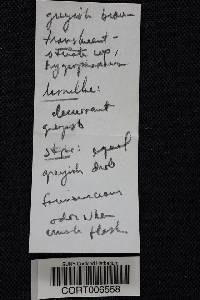 greyish brown
translucent-
striate cap,
hygrophanous
lamellae:
decurrent
greyish
stipe: equal
greyish drab
farinaceous
odor when
crush flesh
SUNY Cortland Herbarium
CORT006558